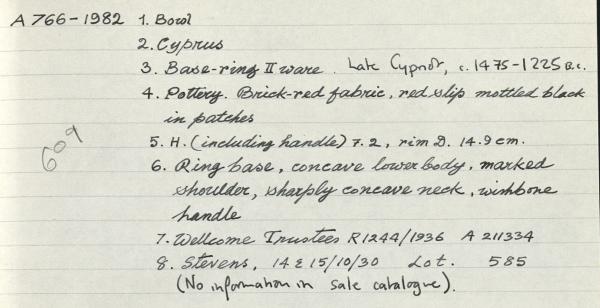 A 766-1982 1. Bowl
2. Cyprus
3. Base-ring II ware. Late Cypriot, c. 1475-1225 B.C.
4. Pottery. Brick-red fabric, red slip mottled black
in patches
5. H. (including handle) 7.2, rim D. 14.9 cm.
609
6. Ring base, concave lower body, marked
shoulder, sharply concave neck, wishbone
handle
7. Wellcome Trustees R1244/1936 A 211334
8. Stevens, 14 & 15/10/30 Lot. 585
(No information in sale catalogue).